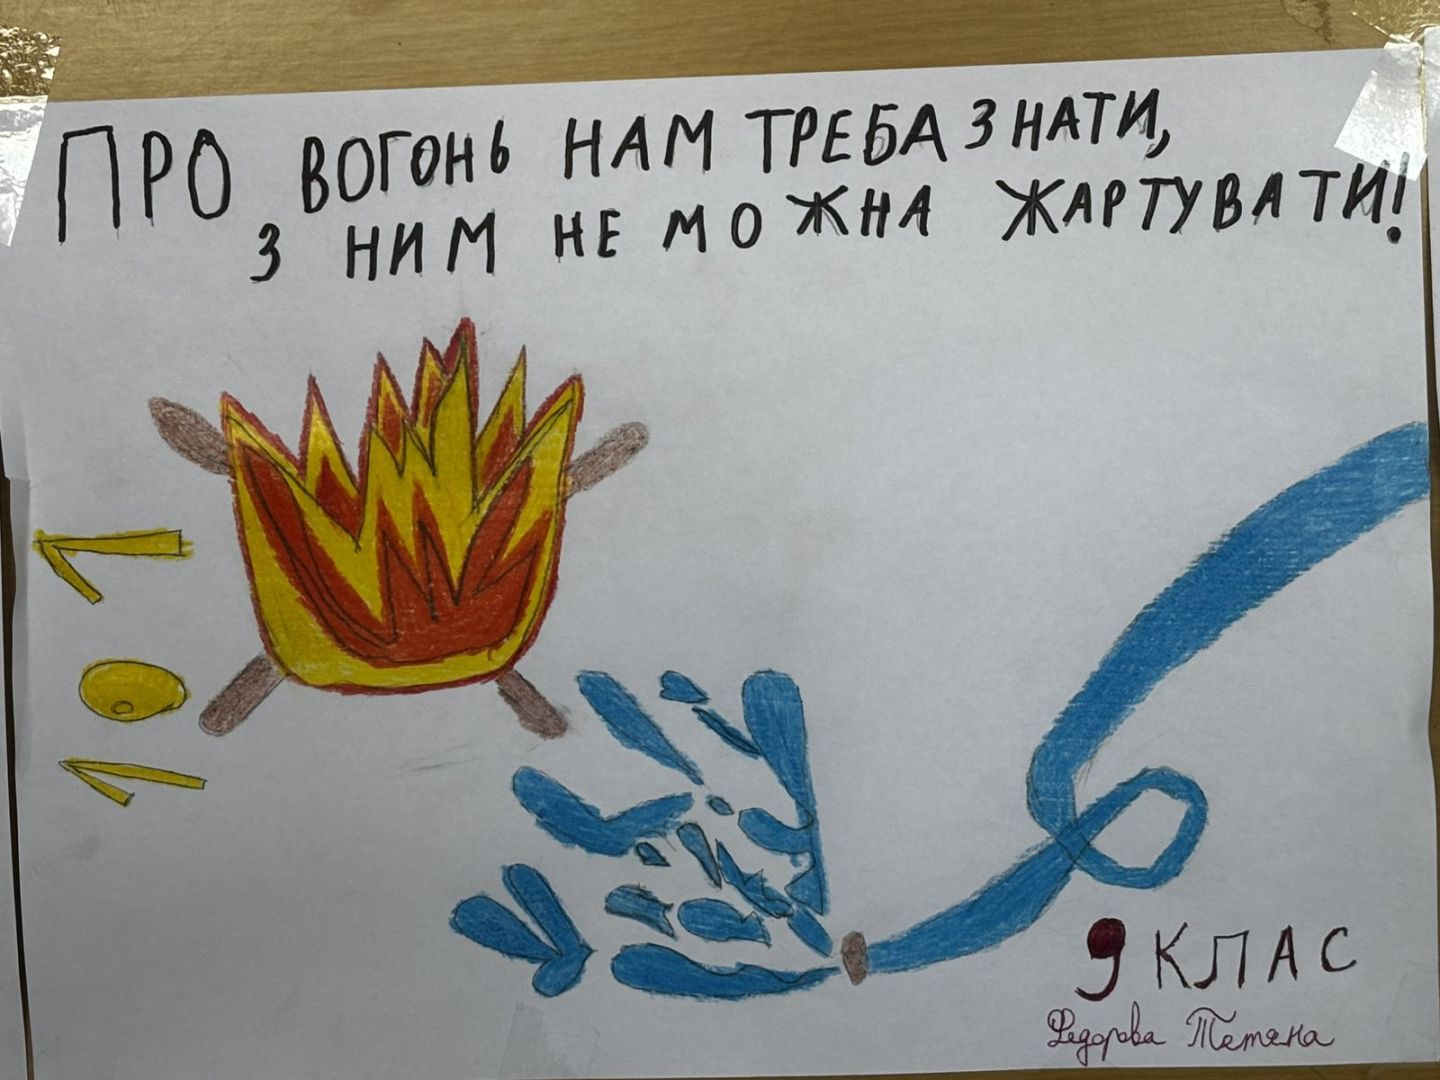 ПРО ВОГОНЬ НАМ ТРЕБА ЗНАТИ,
З НИМ НЕ МОЖНА ЖАРТУВАТИ!
101
9 КЛАС
Федорова Тетяна